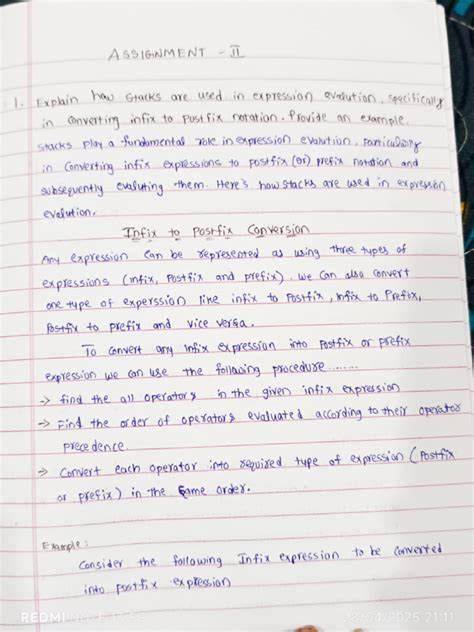 ASSIGNMENT - II
1. Explain how stacks are used in expression evalution, specifically
in converting infix to postfix notation. Provide an example.
stacks play a fundamental role in expression evalution, particularly
in converting infix expressions to postfix (or) prefix notation and
subsequently evaluting them. Here's how stacks are used in expression
evalution.
Infix to Postfix Conversion
Any expression can be represented as using three types of
expressions (infix, Postfix and prefix). we can also convert
one type of experssion like infix to Postfix, infix to Prefix,
Postfix to prefix and vice versa.
To convert any infix expression into Postfix or prefix
expression we can use the following procedure........
→ find the all operators in the given infix expression
→ Find the order of operators evaluated according to their operator
precedence.
→ Convert each operator into required type of expression (Postfix
or prefix) in the same order.
Example:
Consider the following Infix expression to be converted
into postfix expression
REDMI
28/04/2025 21:11